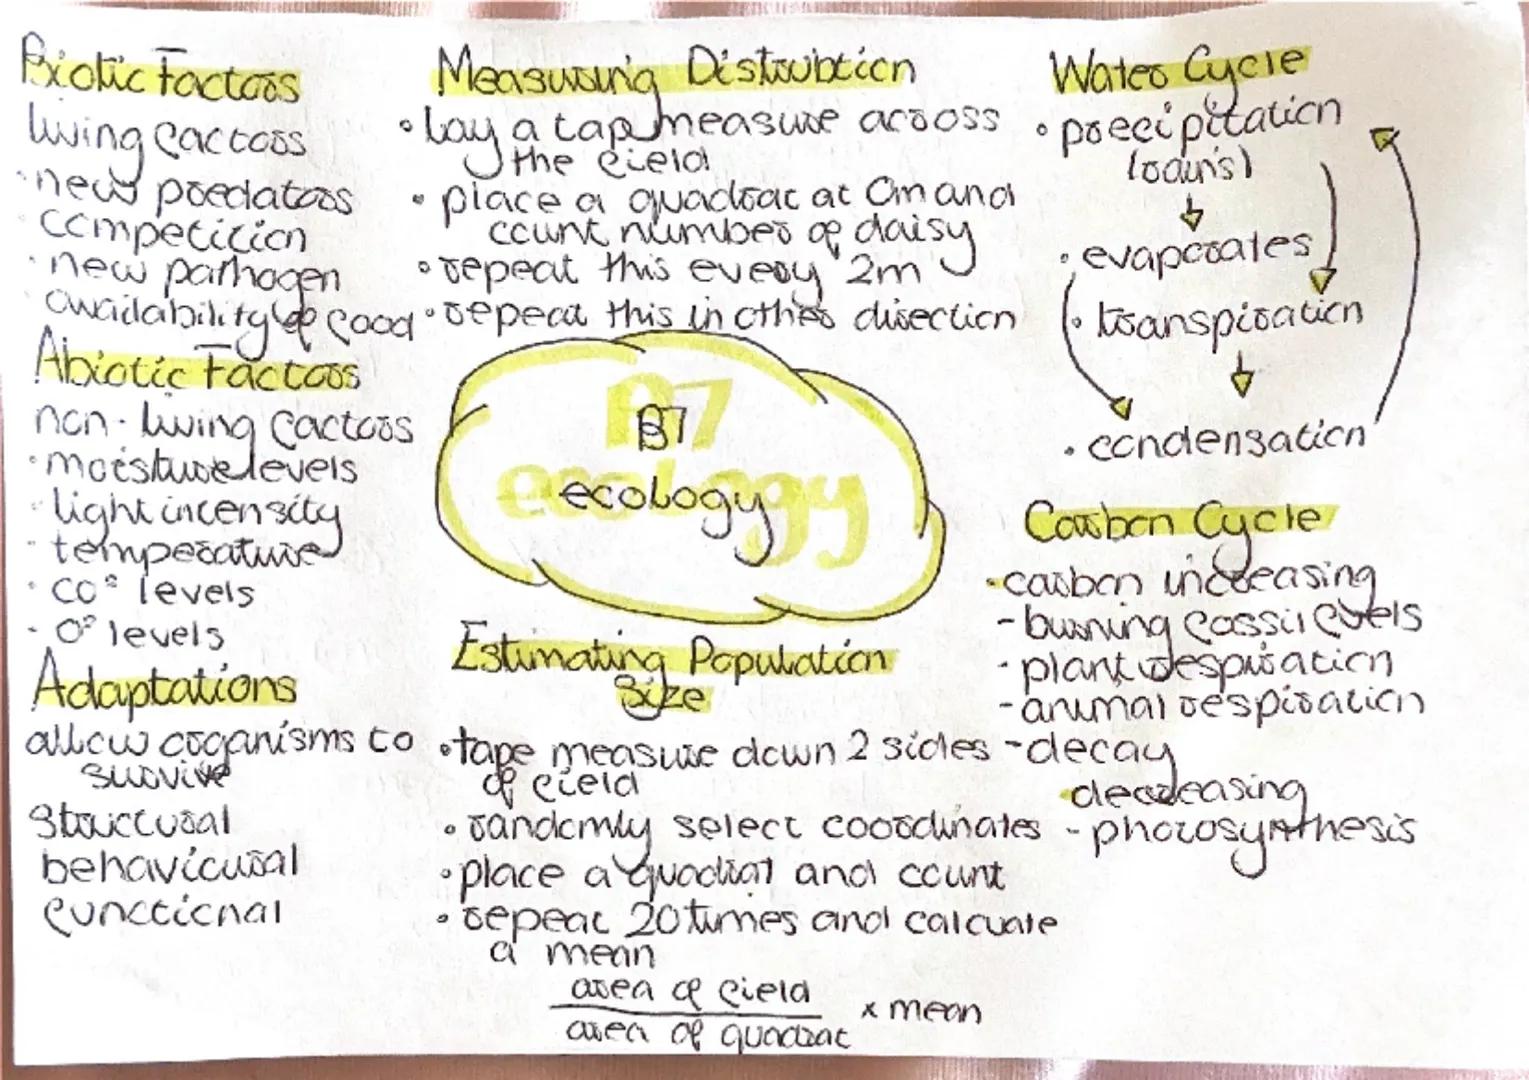 Biotic Factors
living factors
· new predators
· competition
· new pathogen
· availability of food
Abiotic Factors
non-living factors
· moisture levels
· light intensity
· temperature
· CO² levels
· O² levels
Adaptations
allow organisms to
survive
structural
behavioural
functional
Measuring Distribution
• Lay a tap measure across
the field
• place a quadrat at 0m and
count number of daisy
• repeat this every 2m
• repeat this in other direction
B7
ecology
B7
ecology
Estimating Population
Size
• tape measure down 2 sides
of field
• randomly select coordinates
• place a quadrat and count
• repeat 20 times and calcuate
a mean
area of field
area of quadrat
x mean
Water Cycle
• precipitation
(rains)
• evaporates
• transpiration
• condensation
Carbon Cycle
• carbon increasing
- burning fossil fuels
- plant respiration
- animal respiration
- decay
• decreasing
- photosynthesis